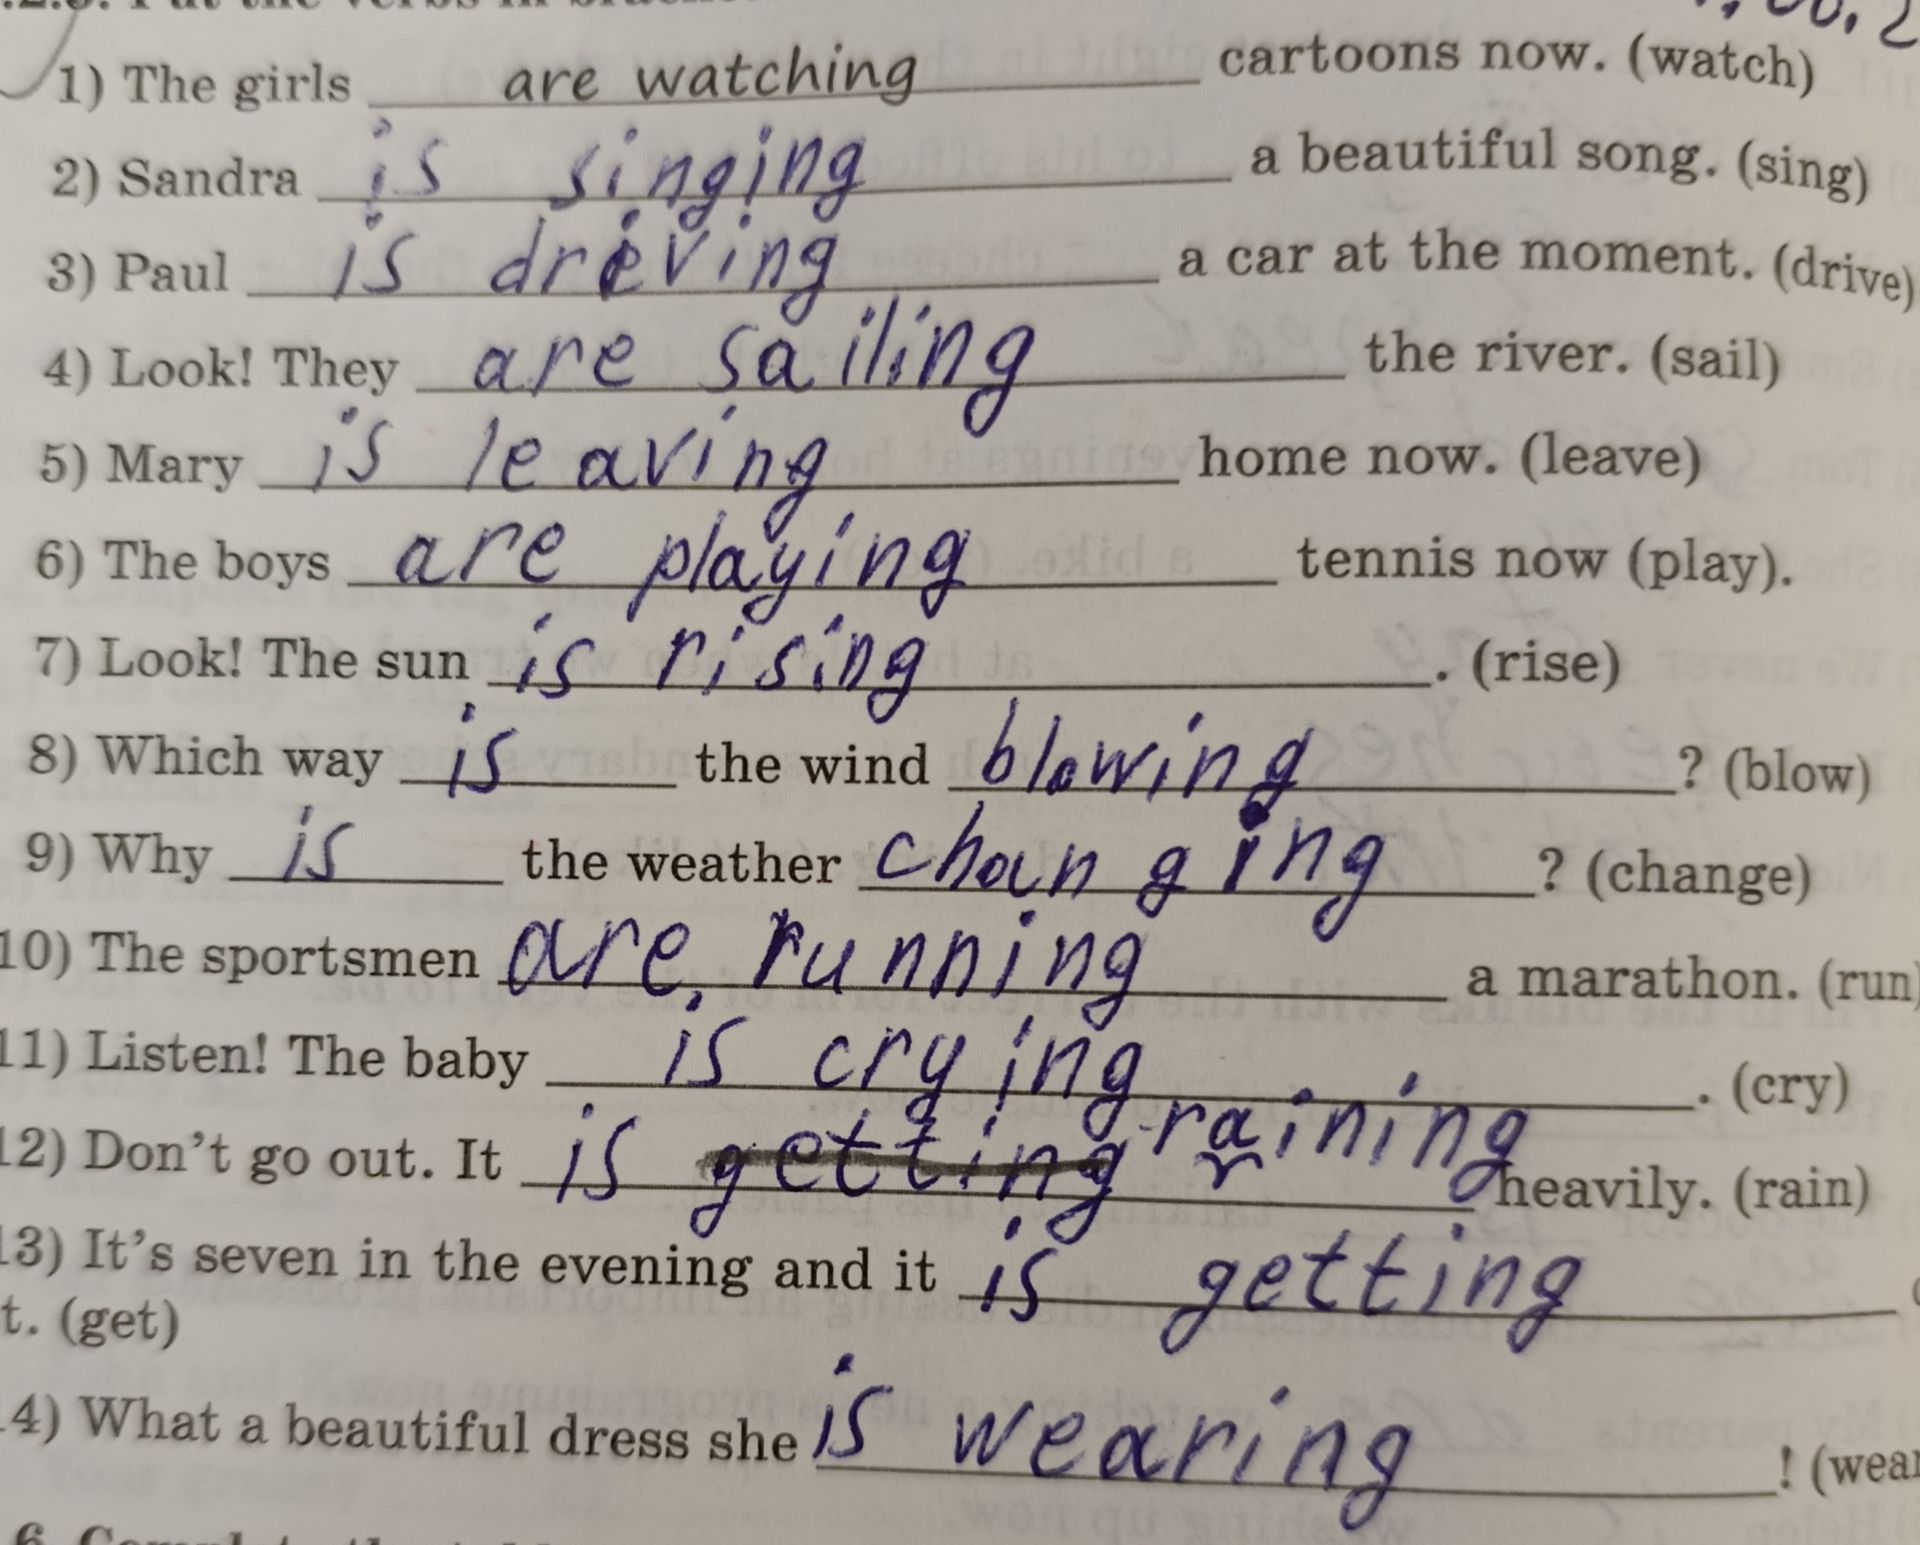 1) The girls are watching cartoons now. (watch)
2) Sandra is singing a beautiful song. (sing)
3) Paul is driving a car at the moment. (drive)
4) Look! They are sailing the river. (sail)
5) Mary is leaving home now. (leave)
6) The boys are playing tennis now (play).
7) Look! The sun is rising. (rise)
8) Which way is the wind blowing? (blow)
9) Why is the weather changing? (change)
10) The sportsmen are running a marathon. (run)
11) Listen! The baby is crying. (cry)
12) Don't go out. It is getting raining heavily. (rain)
13) It's seven in the evening and it is getting
t. (get)
4) What a beautiful dress she is wearing! (wear